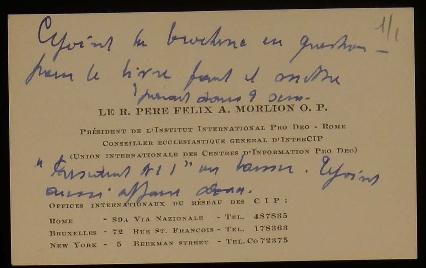 1/1
Cijoint la brochure en question –
pour le livre faut il mettre
paraît dans 9 sem.
LE R. PERE FELIX A. MORLION O. P.
PRÉSIDENT DE L'INSTITUT INTERNATIONAL PRO DEO - ROME
CONSEILLER ECCLESIASTIQUE GENERAL D'INTERCIP
(UNION INTERNATIONALE DES CENTRES D'INFORMATION PRO DEO)
"President
Cijoint
aussi affaire
OFFICES INTERNATIONAUX DU RÉSEAU DES C I P :
ROME - 89A VIA NAZIONALE - TEL. 487835
BRUXELLES - 72 RUE ST. FRANCOIS - TEL. 178363
NEW YORK - 5 BEEKMAN STREET - TEL. CO 72375